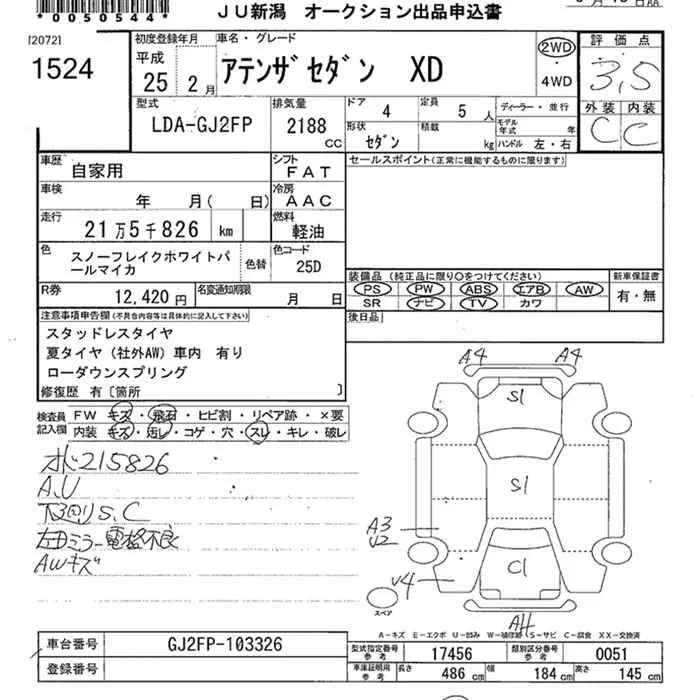 *0050544*
JU新潟 オークション出品申込書
120721
1524
初度登録年月
平成
25 2 月
車名・グレード
アテンザセダン XD
2WD
・
4WD
評価点
3,5
外装 内装
C C
型式
LDA-GJ2FP
排気量
2188
CC
ドア
4
定員
5 人
形状
セダン
積載
kg
ディーラー・並行
モデル年式 年
ハンドル 左・右
車歴
自家用
シフト
FAT
車検
年 月( 日)
冷房
AAC
走行
21万5千826 km
燃料
軽油
色
スノーフレイクホワイトパールマイカ
色替
色コード
25D
R券
12,420 円
名変通知期限
月 日
セールスポイント(正常に機能するものに限ります)
装備品 (純正品に限り○をつけてください)
PS PW ABS エアB AW
SR ナビ TV カワ
新車保証書
有・無
後日品
注意事項申告欄 (不具合内容等は具体的に記入して下さい)
スタッドレスタイヤ
夏タイヤ(社外AW)車内 有り
ローダウンスプリング
修復歴 有〔箇所 〕
検査員記入欄
FW キズ・飛石・ヒビ割・リペア跡・×要
内装 キズ・汚レ・コゲ・穴・スレ・キレ・破レ
215826
A,U
下回りS,C
左田ミラー電格不良
AWキズ
A4 A4
S1
S1
A3
U2
C1
U4
スペア
A4
A-キズ E-エクボ U-凹み W-補修跡 S-サビ C-腐食 XX-交換済
車台番号
GJ2FP-103326
登録番号
型式指定番号 参考
17456
類別区分番号 参考
0051
車庫証明用 参考
長さ 486 cm
幅 184 cm
高さ 145 cm